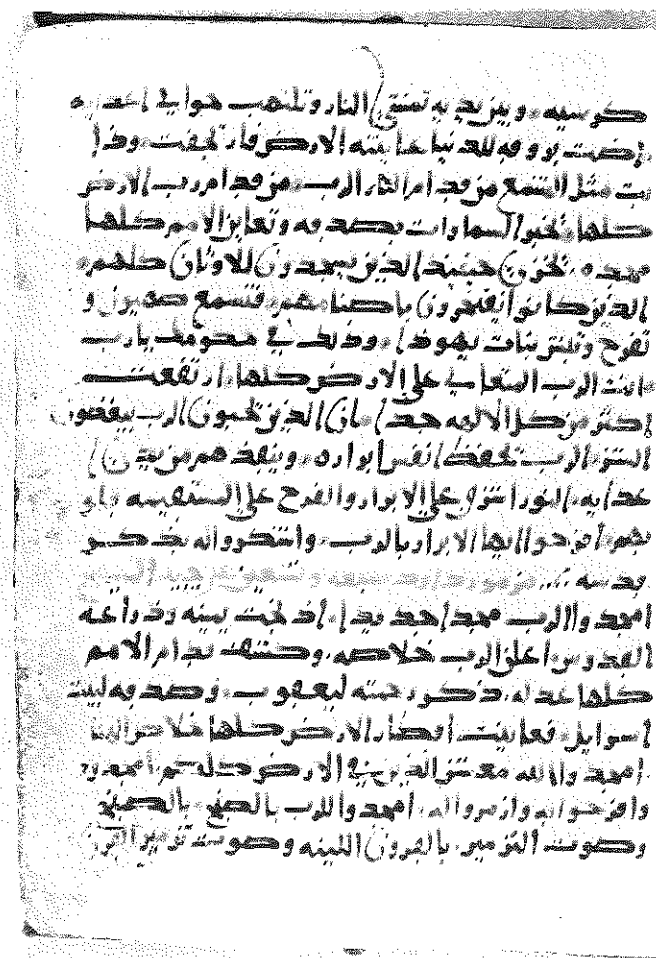 كرسيه وبين يديه تمشي النار وتلتهب حوالي اعدايه
اضت بروقه للدنيا عاينته الارض فارتجفت وذا
بت مثل الشمع من قدام الرب من قدام رب الارض
كلها تخبر السماوات بصدقه وتعاين الامم كلها
مجده تخزون حينيذ الذين يسجدون للاوثان كلهم
الذين كانوا يفتخرون باصنامهم فتسمع صهيون و
تفرح بنات يهوذا وذلك في حكومتك يارب
انت الرب المتعالي على الارض كلها ارتفعت
اكثر من كل الالهه جدا يان الذين تحبون الرب يبغضون
الشر الرب يحفظ انفس ابراره وينقذهم من يدي
النور اشرق على الابرار والفرح على المستقيمه قلو
بهم افرحوا ايها الابرار بالرب واشكروا لذكر
قدسه
امجدوا الرب مجدا جديدا اذ نجت يمينه وذراعه
القدوس اعلن الرب خلاصه وكشف قدام الامم
كلها عدله ذكر رحمته ليعقوب وصدقه لبيت
اسرايل فعاينت اقطار الارض كلها خلاص
امجدوا الله معشر الذين في الارض كلهم امجدو
وافرحوا له وازمروا له امجدوا للرب بالصنج بالصنج
وصوت التزمير بالقرون اللينه وصوت تزمير القرن